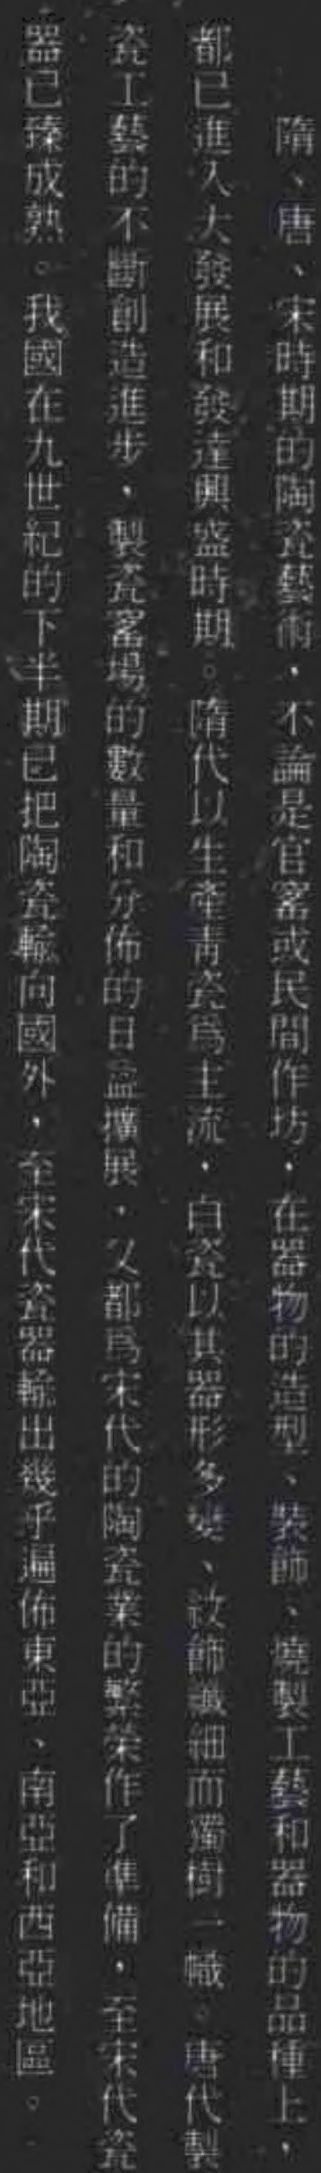 隋、唐、宋時期的陶瓷藝術，不論是官窰或民間作坊，在器物的造型、裝飾、燒製工藝和器物的品種上，
都已進入大發展和發達興盛時期。隋代以生產青瓷爲主流，白瓷以其器形多變、紋飾纖細而獨樹一幟。唐代製
瓷工藝的不斷創造進步，製瓷窰場的數量和分佈的日益擴展，又都爲宋代的陶瓷業的繁榮作了準備，至宋代瓷
器已臻成熟。我國在九世紀的下半期已把陶瓷輸向國外，至宋代瓷器輸出幾乎遍佈東亞、南亞和西亞地區。